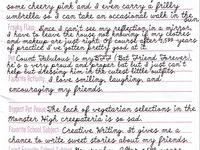 some cherry pink and I even carry a frilly
umbrella so I can take an occasional walk in the
Freaky Flaw: Since I can't see my reflection in a mirror,
I have to leave the house not knowing if my clothes
and makeup are just right. Of course after 1,599 years
of practice I've gotten pretty good at it.
Pet: Count Fabulous is my (Bat Friend Forever).
he's a very proud and proper bat but I just can't
help but dressing him in the cutest little outfits.
Favorite Activity: I love smiling, laughing, and
encouraging my friends.
Biggest Pet Peeve: The lack of vegetarian selections in the
Monster High creepateria is so sad.
Favorite School Subject: Creative Writing. It gives me a
chance to write sweet stories about my friends.